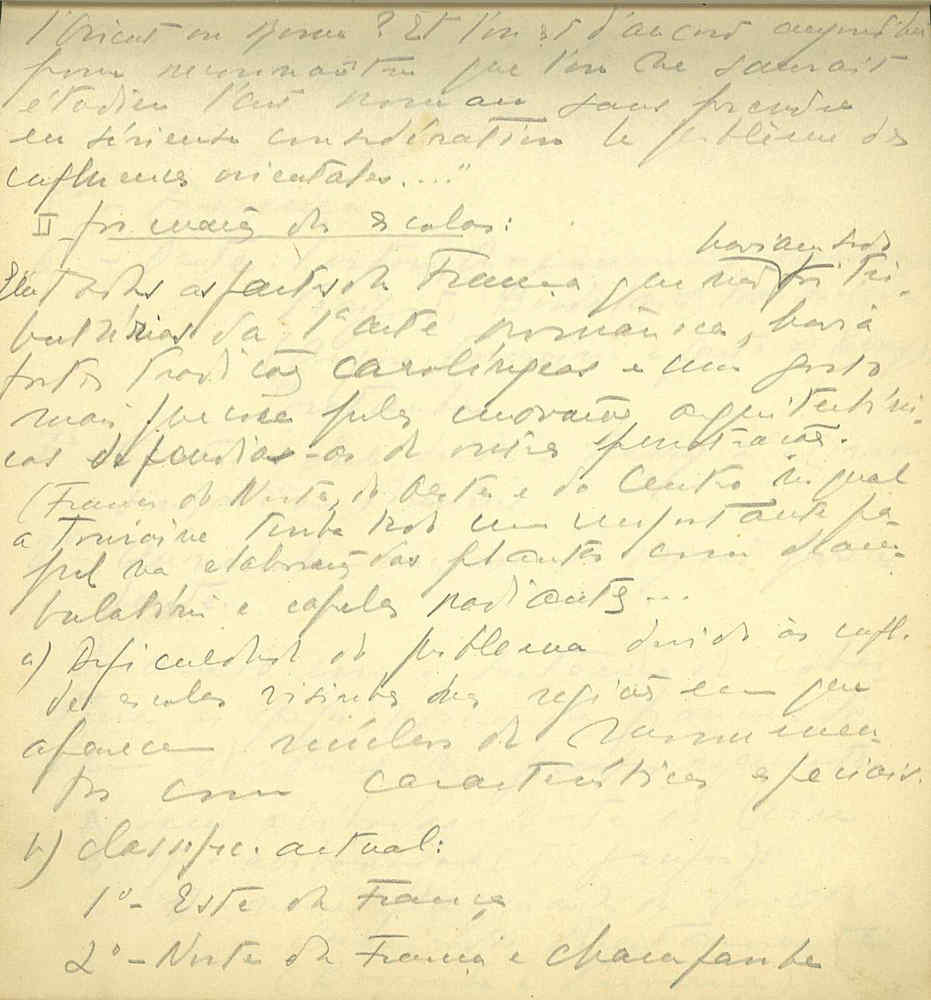 l'Orient ou Rome? Et l'on est d'accord aujourd'hui
pour reconnaître que l'on ne saurait
étudier l'art roman sans prendre
en sérieuse considération le problème des
influences orientales...."
II formação das escolas:
haviam sido
Em todas as partes da França que não tri-
butárias da 1ª arte românica, havia
fortes tradições carolíngeas e um gosto
mais pelas inovações arquitectóni-
cas defendia-as de outras penetrações.
(França do Norte, do Oeste e do Centro no qual
a Touraine tinha tido um importante pa-
pel na elaboração das plantas com deam-
bulatório e capelas radiantes...
a) Dificuldade do problema devido às infl.
de escolas visinhas das regiões em que
aparecem núcleos de monumen-
tos com características especiais.
b) classific. actual:
1º - Este da França
2º - Norte da França e Champanhe